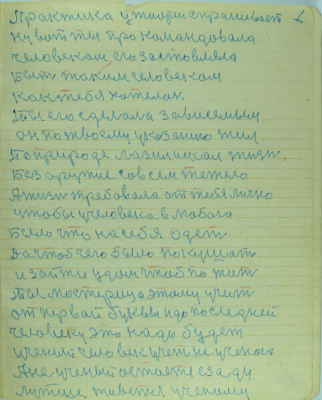 Практика у теории спрашивает
ну вот ты про командовала
человеком, его заставляла
Быть таким человекам
Как тебя хотелась.
Ты его сделала зависемым
он по твоему указанию жил
По природе лазил искал жизн.
Без оружие совсем тежело
А жизн требовала от тебя лично
чтобы у человека в любога
Было что на себя одет
Да чтоб чего было покушат
и зайти у дом чтоб по жит
Ты мастерица этому учит
от первай буквы и до последней
человеку это надо будет
ученый человек учит не ученага
А не ученый остается сзади
лутще живется ученому